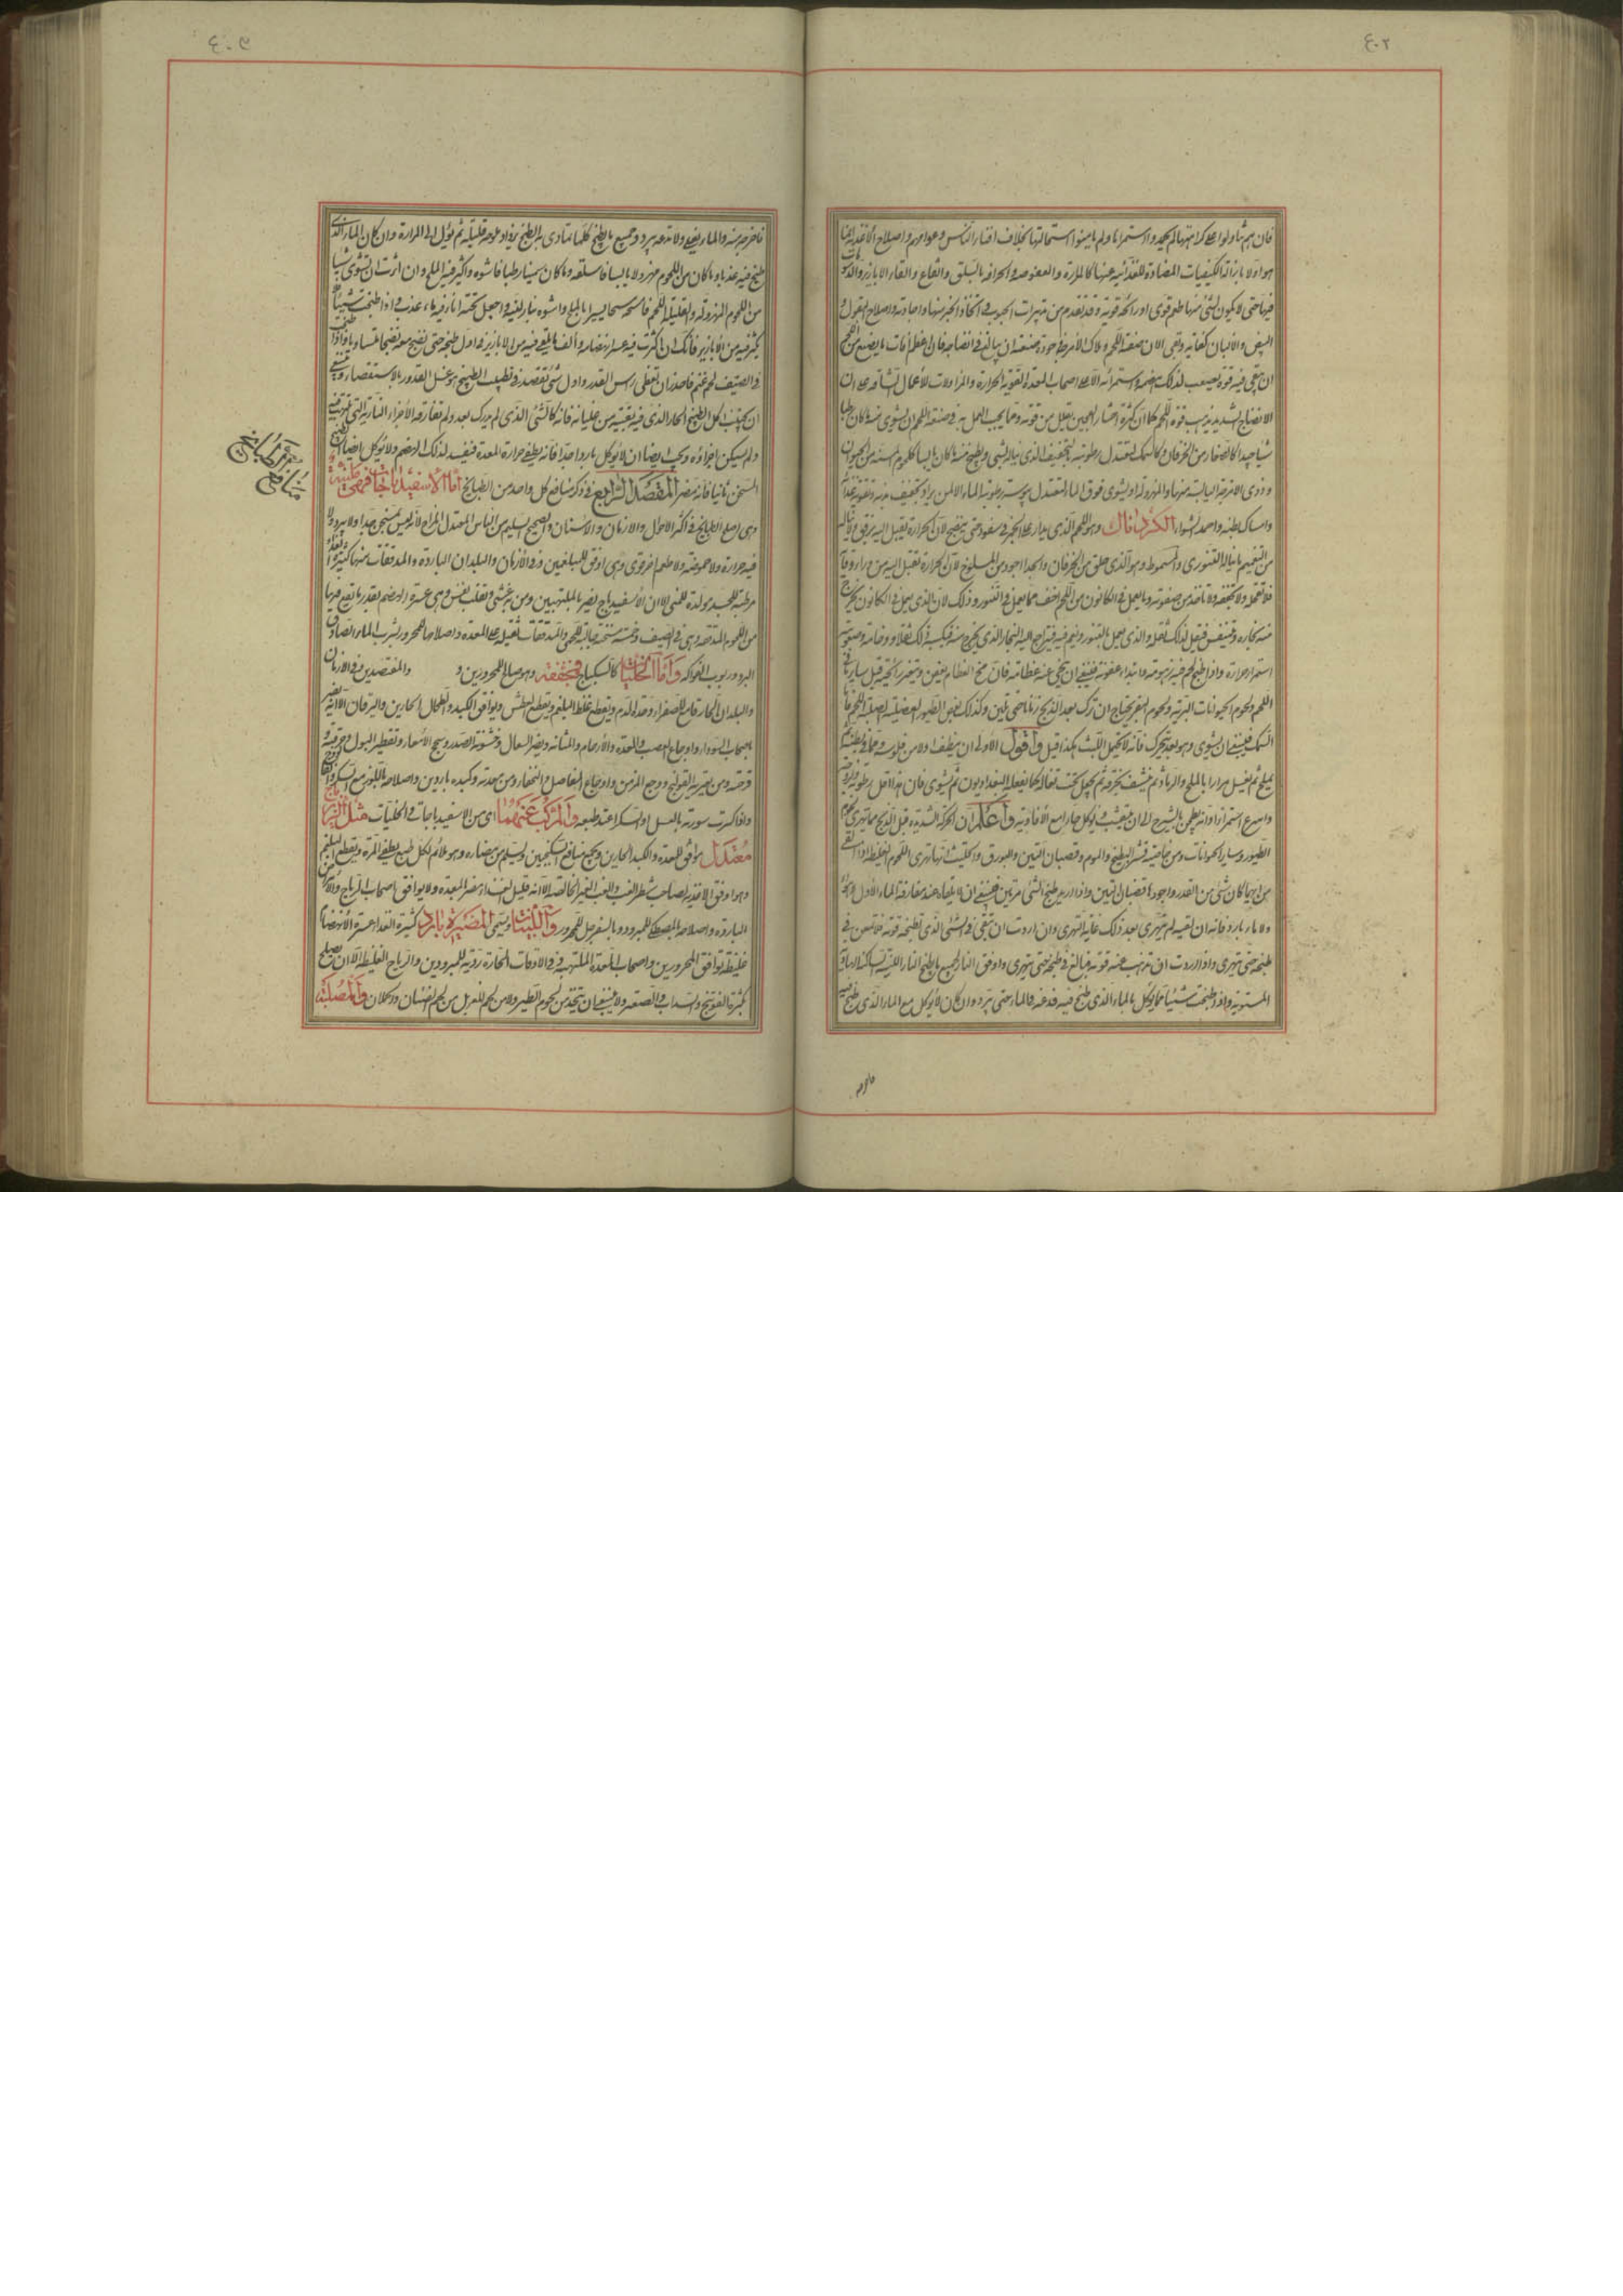 ٤٠٢
فان هم تناولوا على كراهتها لم يجيدوا استمراءها ولم يأمنوا استحالتها بخلاف اغنياء الناس وعوامهم واصلاح الاغذية انما
هو اولا بازالة الكيفيات المضادة للغذائية عنها كالمرارة والعفوصة والحرافة بالسلق والنقاع والقاء الابازير
فيها حتى لا يكون لشئ منها طعم قوى او رائحة قوية وقد تقدم من تدبيرات الحبوب في اتخاذ الخبز منها واصلاح البقول
البيض والالبان كفاية وبقى الان صنعة اللحم وملاك الامر في جودة صنعته ان يبالغ في انضاجه فان اعظم آفات
ان تبقى فيه قوة يصعب لذلك هضمه واستمرائه الا على اصحاب المعدة القوية الحرارة والمزاولات للاعمال الشاقة على ان
الانضاج الشديد يذهب بقوة اللحم كما ان كثرة اختمار العجين يقلل من قوته ومما يجب العمل به في صنعة اللحم ان يشوى منه ما كان رطبا
شيا جيدا كالصغار من الخرفان وكالسمك لتعتدل رطوبته بالتخفيف الذى يناله بالشى ويطبخ منه ما كان يابسا كلحوم المسنة من الحيوان
وذوى الامزجة اليابسة منها والمهزولة او يشوى فوق الماء لتعتدل يبوسته برطوبة الماء الا لمن يراد تجفيف بدنه وتقوية معدته
وامساك بطنه واحمد الشواء الكردناك وهو اللحم الذى يدار على الجمر في سفود حتى ينضج لان الحرارة تقبل اليه برفق
من التغميم ما ينال التنورى والمسموط وهو الذى حلق من الخرفان والجداء اجود من المسلوخ لان الحرارة تقبل اليه من وراء وقاية
فلا تقحل ولا تجففه ولا تأخذ من صفوته وما يعمل في الكانون من اللحم اخف مما يعمل في التنور وذلك لان الذى يعمل في الكانون يخرج
منه بخاره وتنشف فيقل لذلك ثقله والذى يعمل بالتنور ويغم فيه فيتراجع اليه البخار الذى يخرج منه فيكسبه ذلك ثقلا ووخامة وصعوبة
استمراء وحرارة واذا طبخ لحم فيه زهومة وابتداء عفونة فينبغى ان ينحى عنه عظامه فان مخ العظام يعفن ويتغير رائحته قبل ساير
اللحم ولحوم الحيوانات البرية ولحوم البقر يحتاج ان تترك بعد الذبح زمانا حتى تلين وكذلك بعض الطيور العضلية الصلبة اللحم فاما
السمك فينبغى ان يشوى وهو بعد يتحرك فانه لا يحتمل اللبث هكذا قيل واقول الاولى ان ينظف اولا من فلوسه ومما في بطنه ثم
يملح ثم يغسل مرارا بالملح والرماد ثم ينشف بخرقة ثم يجعل تحت ثقالة كما يفعله البغداديون ثم يشوى فان هذا اقل رطوبة ولزوجة
واسرع استمراء او انه يطجن بالشيرج الى ان ينشف ويؤكل حارا مع الافاويه واعلم ان الحركة الشديدة قبل الذبح مما تهرى لحوم
الطيور وساير الحيوانات ومن خاصية قشر البطيخ والموم وقضبان التين والبورق والحلتيت انها تهرى اللحوم الغليظة اذا القى
من ايها كان شئ من القدر واجودها قضبان التين واذا اريد طبخ الشئ مرتين فينبغى ان لا يلقاه عند مفارقة الماء الاول
ولا ماء بارد فانه ان لقيه لم يتهرى بعد ذلك غاية التهرى وان اردت ان تبقى في الشئ الذى تطبخه قوته فلا تمعن في
طبخه حتى يتهرى واذا اردت ان تذهب عنه قوته فبالغ في طبخه حتى يتهرى واوفق النار لجميع ما يطبخ النار اللينة الساكنة
المستوية واذا طبخت شيئا مما يؤكل بالماء الذى طبخ فيه فدعه في الماء حتى يبرد وان كان لا يؤكل مع الماء الذى طبخ فيه
٤٠٥
فاخرجه منه والماء يغلى ولا تدعه يبرد وجميع ما يطبخ كلما تمادى به الطبخ يزداد ملوحة قليلة ثم يؤل الى المرارة وان كان الماء الذى
طبخ فيه عذبا وما كان من اللحوم مهزولا يابسا فاسلقه وما كان سمينا رطبا فاشوه واكثر فيه الملح وان اردت ان تشوى شيئا
من اللحوم المهزولة والقليلة اللحم فامسحه مسحا يسيرا بالملح واشوه بنار لينة واجعل تحته اناء فيه ماء عذب واذا طبخت شيئا
يكثر فيه من الابازير فانك ان اكثرت فيه عسر انهضامه وألف ما يقع فيه من الابازير في اول طبخه حتى تنضج معه نضجا متساويا واذا طبخت
في الصيف لحم غنم فاحذر ان تغطى رأس القدر واول شئ تقصده في تطييب الطبيخ هو غسل القدور بالاستقصاء وينبغى
ان يجتنب اكل الطبيخ الحار الذى فيه بقية من غليانه فانه كالشئ الذى لم يدرك بعد ولم تفارقه الاجزاء النارية التى
ولم يسكن اجزاؤه ويجب ايضا ان لا يؤكل باردا جدا فانه يطفى حرارة المعدة فيفسد لذلك الهضم ولا يؤكل ايضا الطبيخ
المسخن ثانيا فانه مضر المقصد الرابع في ذكر منافع كل واحد من الطبايخ اما الاسفيدباجات فهى طيبة
وهى اصلح الطبايخ في اكثر الاحوال والازمان والاسنان والصحيح السليم من الناس المعتدل المزاج لانه ليس بمسخن جدا ولا مبرد ولا
فيه حرارة ولا حموضة ولا طعم اخر قوى وهى اوفق للبلغميين وفى الازمان والبلدان الباردة والمدققات منها كثيرة الغذاء
مرطبة للجسد مولدة للمنى الا ان الاسفيدباج يضر بالملتهبين ومن به غشى وتقلب نفس وهى عسرة الهضم بقدر ما يقع فيها
من اللحوم المدققة وهى في الصيف وخمة مسخنة جالبة للحمى والمدققات ثقيلة على المعدة واصلاحها للمحرور شرب الماء الصادق
البرد وربوب الفواكه واما الخليات كالسكباج فمجففة وهو صالح للمحرورين و والمقتصدين وفى الازمان
والبلدان الحارة قامع للصفراء وحدة الدم ويقطع غلظ البلغم ويقطع العطش ويوافق الكبد والطحال الحارين واليرقان الا انه يضر
باصحاب السوداء واوجاع العصب والمعدة والارحام والمثانة ويضر السعال وخشونة الصدر وسحج الامعاء وتقطير البول وحرقته
قرحته ومن يعتريه القولنج ووجع المزمن واوجاع المفاصل والنخاع ومن معدته وكبده باردين واصلاحه باللوز مع السكر
واذا كسرت سورته بالعسل او السكر اعتد طبعه والمركب عنهما اى من الاسفيدباجات والخليات مثل الزيرباج
معتدل موافق للمعدة والكبد الحارين ويجمع منافع السكنجبين ويسلم من مضاره وهو ملائم لكل طبع يطفى المرة ويقطع البلغم
وهو اوفق الاغذية لصاحب شطر الغب والغب الغير الخالصة الا انه قليل الغذاء مضر بالمعدة ولا يوافق اصحاب الرياح والامزجة
الباردة واصلاحه بالمصطكى للمبرود وبالسفرجل للمحرور واللبنية وتسمى المضيرة باردة كثيرة الغذاء عسرة الانهضام
غليظة توافق المحرورين واصحاب المعدة الملتهبة وفى الاوقات الحارة ردية للمبرودين والرياح الغليظة الا ان يصلح
بكثرة الفوتنج والسداب والصعتر ولا ينبغى ان يتخذ من لحوم الطير ولا من لحم الهزيل من لحم الضان والحملان والمصلية
معرفة الطبايخ
منافع